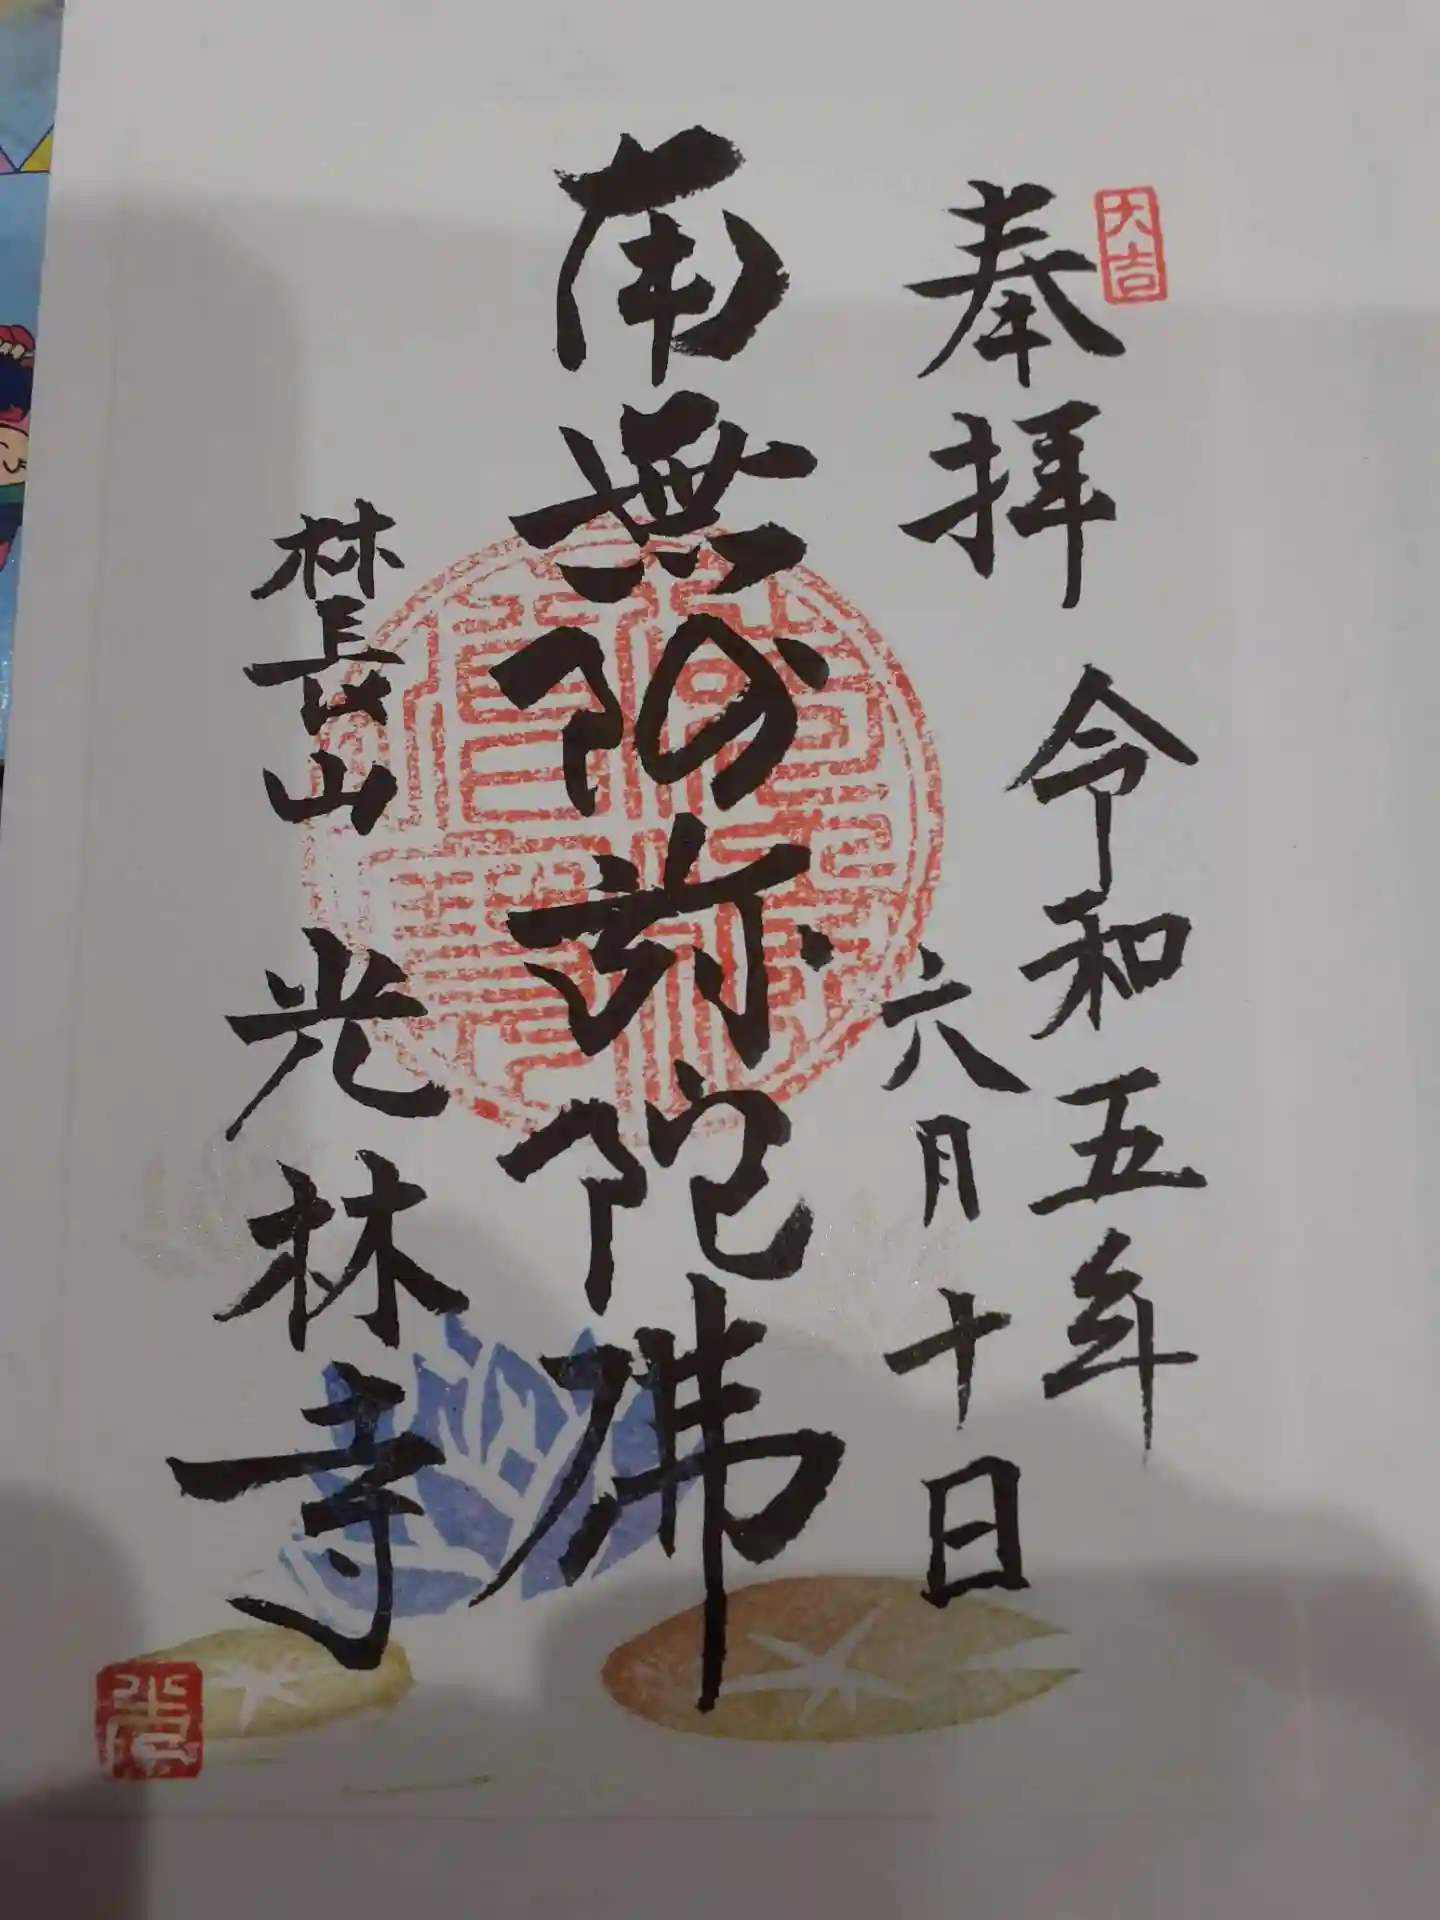 大吉
奉拝
令和五年
六月十日
南無阿弥陀佛
林長山 光林寺